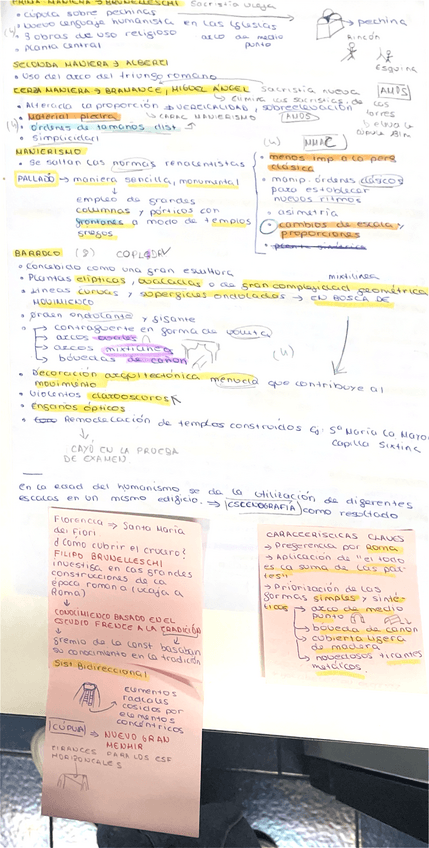 PRIMA MANIERA → BRUNELLESCHI Sacristía vieja
• Cúpula sobre pechinas → pechina
• Nuevo lenguaje humanista en las iglesias
• 3 obras de uso religioso arco de medio punto
• Planta central
Rincón
Esquina
SECONDA MANIERA → ALBERTI
• Uso del arco del triunfo romano
TERZA MANIERA → BRAMANTE, MIGUEL ÁNGEL Sacristía nueva
• Altera la proporción → VERTICALIDAD, sobreelevación
• Material piedra → CARAC MANIERISMO
• órdenes de tamaños dist.
• Simplicidad
MANIERISMO
• Se saltan las normas renacentistas
PALLADIO → manera sencilla, monumental
empleo de grandes
columnas y pórticos con
frontones a modo de templos
griegos
• menos imp a la pers
clásica
• manip. órdenes clásicos
para establecer
nuevos ritmos
• asimetría
• cambios de escala y
proporciones
BARROCO (8)
• Concebido como una gran escultura
mixtilínea
• Plantas elípticas, ovaladas o de gran complejidad geométrica
• Líneas curvas y superficies onduladas → EN BUSCA DE
MOVIMIENTO
• Orden ondulante y gigante
→ contrafuerte en forma de voluta
→ arcos ovales
→ arcos mixtilíneos
→ bóvedas de cañón
• Decoración arquitectónica menuda que contribuye al
movimiento
• Violentos claroscuros
• Engaños ópticos
• Remodelación de templos construidos Ej: Sta María La Mayor
Capilla Sixtina
CAYÓ EN LA PRUEBA
DE EXAMEN
En la edad del humanismo se da la utilización de diferentes
escalas en un mismo edificio. ⇒ ESCENOGRAFÍA como resultado
Florencia → Santa María
dei Fiori
¿Cómo cubrir el crucero?
FILIPO BRUNELLESCHI
investiga en las grandes
construcciones de la
época romana (viaja a
Roma)
CONOCIMIENTO BASADO EN EL
ESTUDIO FRENTE A LA TRADICIÓN
gremio de la const basaban
su conocimiento en la tradición
Sist Bidireccional
elementos
radiales
cosidos por
elementos
concéntricos
CÚPULA → NUEVO GRAN
MENHIR
TIRANTES PARA LOS ESF
HORIZONTALES
CARACTERÍSTICAS CLAVES
→ Preferencia por Roma
→ Aplicación de "el todo
es la suma de las par
tes"
→ Priorización de las
formas simples y sinté-
ticas → arco de medio
punto
→ bóveda de cañón
→ cubierta ligera
de madera
→ novedosos tirantes
metálicos